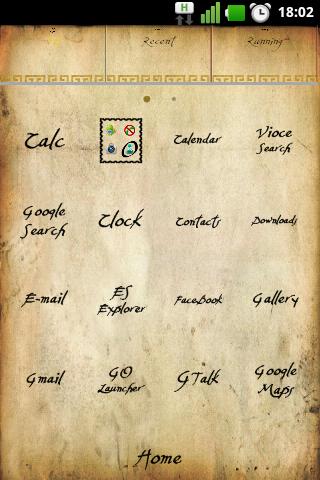 H
18:02
Recent
Running
Calc
Calendar
Vioce
Search
Google
Search
Clock
Contacts
Downloads
E-mail
ES
Explorer
FaceBook
Gallery
Gmail
GO
Launcher
GTalk
Google
Maps
Home